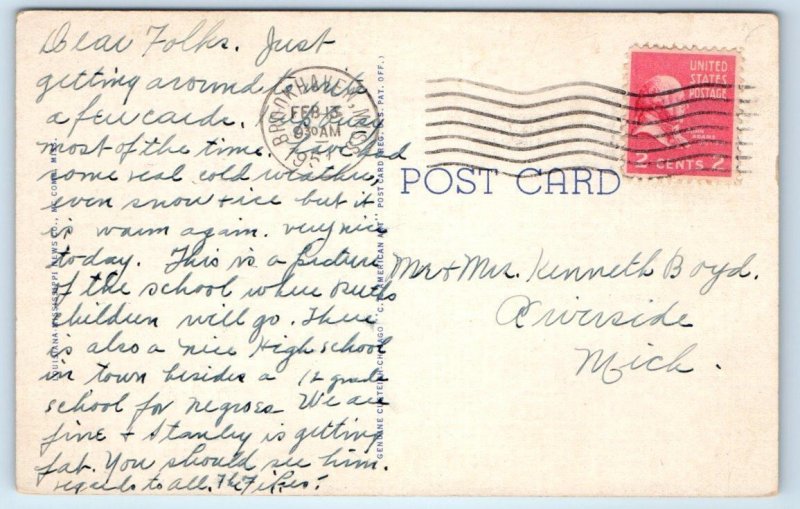 Dear Folks. Just
getting around to write
a few cards. Was busy
most of the time. have had
some real cold weather,
even snow + ice but it
is warm again. very nice
today. This is a picture
of the school where Ruth's
children will go. There
is also a nice High school
in town besides a 12 grade
school for negroes We are
fine + Stanley is getting
fat. You should see him.
regards to all. The Fikes.
BROOKHAVEN, MISS.
FEB 13
930 AM
1951
UNITED
STATES
POSTAGE
JOHN
ADAMS
2 CENTS 2
POST CARD
Mr + Mrs. Kenneth Boyd.
Riverside
Mich.
LOUISIANA-MISSISSIPPI NEWS CO., MC COMB, MISS.
GENUINE CURTEICH-CHICAGO "C. T. AMERICAN ART" POST CARD (REG. U. S. PAT. OFF.)